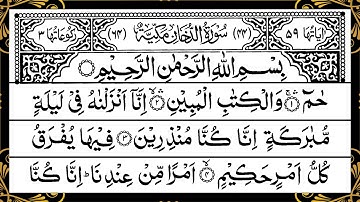 اٰیَاتُهَا ۵۹ (۴۴) سُوْرَةُ الدُّخَانِ مَكِّیَّةٌ (۶۴) رُكُوْعَاتُهَا ۳
بِسْمِ اللّٰهِ الرَّحْمٰنِ الرَّحِیْمِ
حٰمٓ ۚۛ۝۱ وَالْكِتٰبِ الْمُبِیْنِ ۙۛ۝۲ اِنَّاۤ اَنْزَلْنٰهُ فِیْ لَیْلَةٍ
مُّبٰرَكَةٍ اِنَّا كُنَّا مُنْذِرِیْنَ ۝۳ فِیْهَا یُفْرَقُ
كُلُّ اَمْرٍ حَكِیْمٍ ۙ۝۴ اَمْرًا مِّنْ عِنْدِنَا ؕ اِنَّا كُنَّا